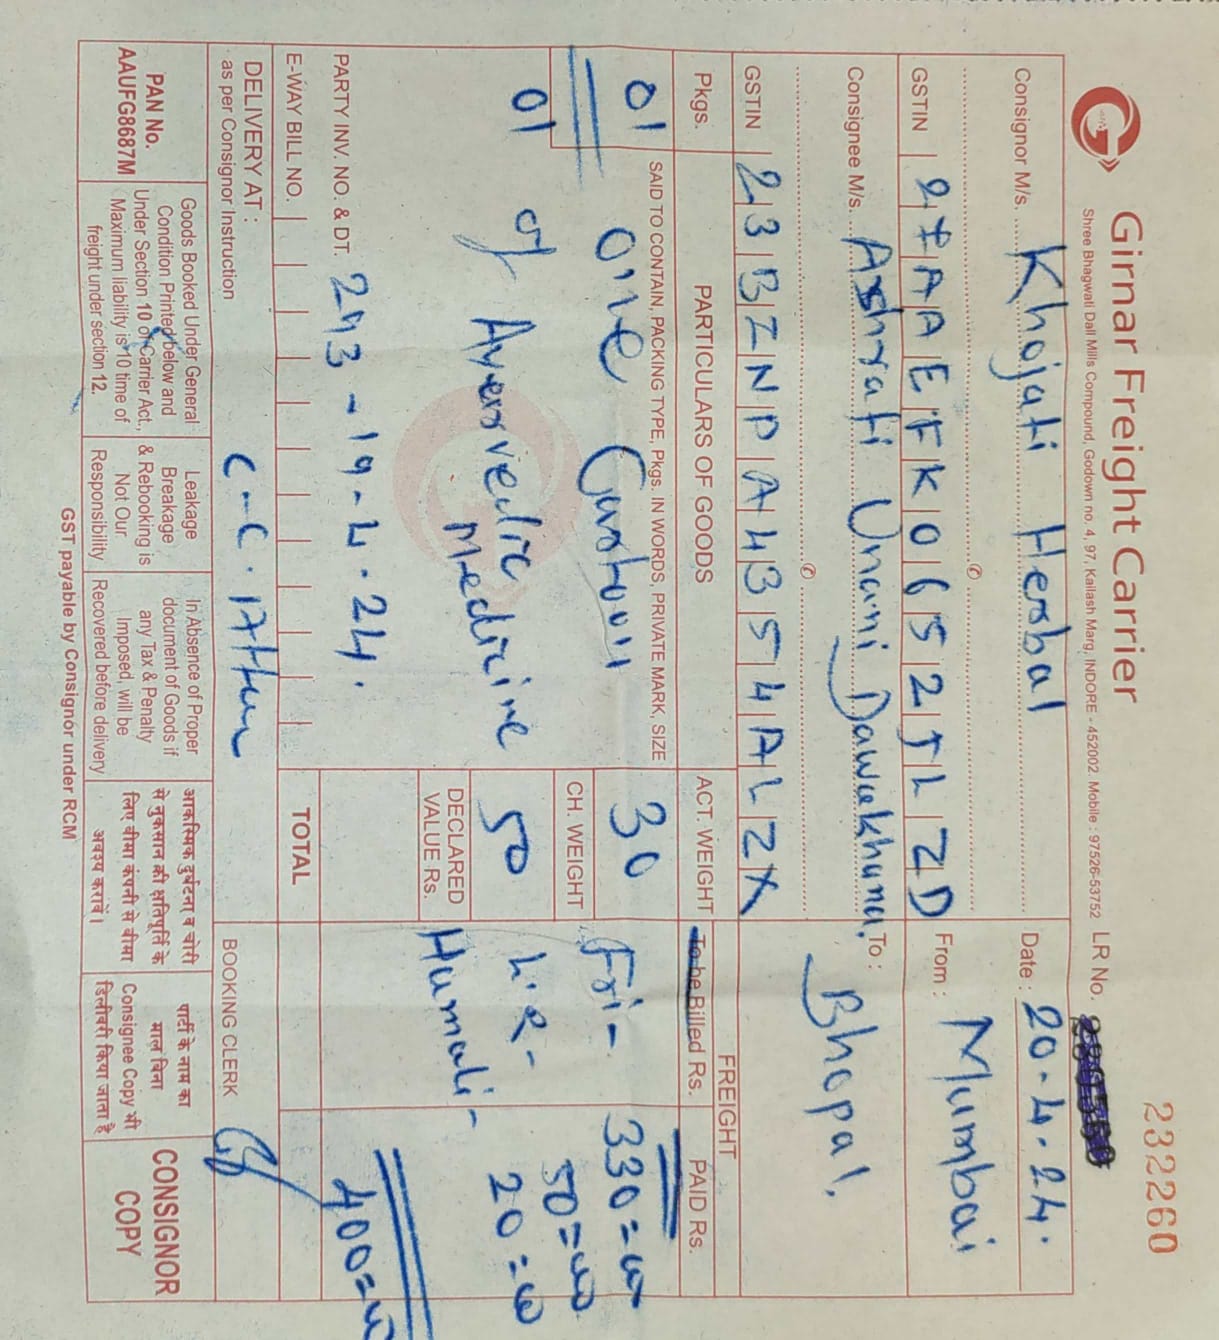 232260
Girnar Freight Carrier
Shree Bhagwati Dall Mills Compound, Godown no. 4, 97, Kailash Marg, INDORE - 452002. Mobile : 97526-53752 LR No.
Consignor M/s. Khojati Herbal
Date : 20-4-24.
GSTIN 27AAEFK0652JLZD
From : Mumbai
Consignee M/s. Ashrafi Unani Dawakhana,
To : Bhopal.
GSTIN 23BZNPA4354ALZX
Pkgs.
PARTICULARS OF GOODS
ACT. WEIGHT
FREIGHT
To be Billed Rs.
PAID Rs.
SAID TO CONTAIN, PACKING TYPE, Pkgs. IN WORDS, PRIVATE MARK, SIZE
01 One Cartoon 30 Fri- 330=00
CH. WEIGHT
50=00
01 of Ayurvedic 50 L.R- 20=00
Medicine
DECLARED
VALUE Rs.
Humali-
PARTY INV. NO. & DT. 293-19-4-24.
400=00
E-WAY BILL NO.
TOTAL
DELIVERY AT :
as per Consignor Instruction
C-C. Attm
BOOKING CLERK
PAN No.
AAUFG8687M
Goods Booked Under General
Condition Printed below and
Under Section 10 of Carrier Act,
Maximum liability is 10 time of
freight under section 12.
Leakage
Breakage
& Rebooking is
Not Our
Responsibility
In Absence of Proper
document of Goods if
any Tax & Penalty
Imposed, will be
Recovered before delivery
आकस्मिक दुर्घटना व चोरी
से नुकसान की क्षतिपूर्ति के
लिए बीमा कंपनी से बीमा
अवश्य करावें।
पार्टी के नाम का
माल बिना
Consignee Copy भी
डिलीवरी किया जाता है
CONSIGNOR
COPY
GST payable by Consignor under RCM